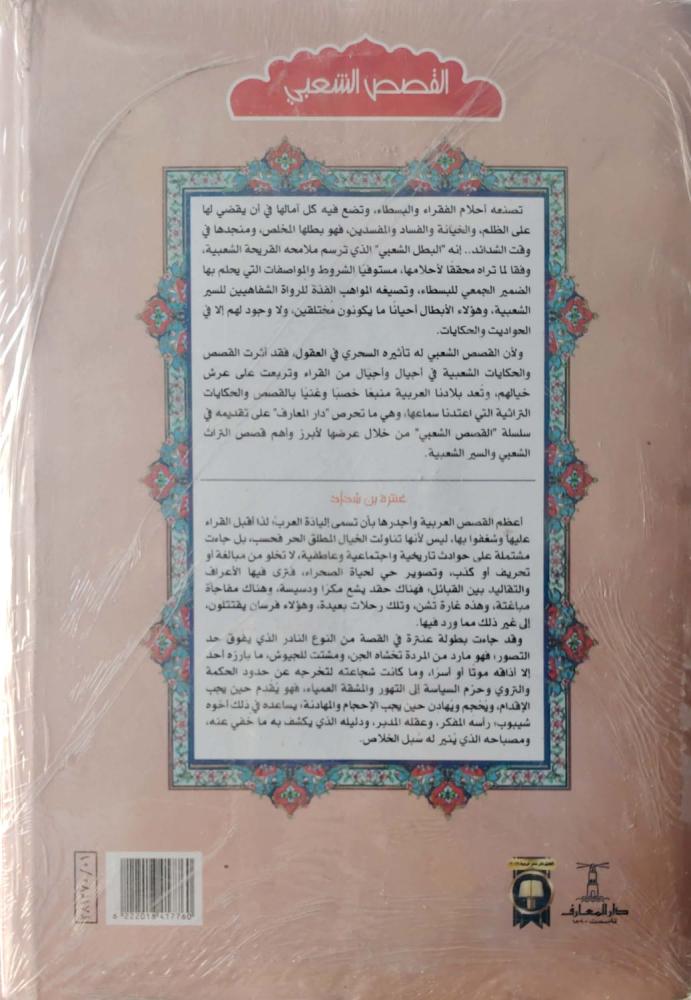 القصص الشعبي
تصنعه أحلام الفقراء والبسطاء، وتضع فيه كل آمالها في أن يقضي لها
على الظلم، والخيانة والفساد والمفسدين، فهو بطلها المخلص، ومنجدها في
وقت الشدائد.. إنه "البطل الشعبي" الذي ترسم ملامحه القريحة الشعبية،
وفقا لما تراه محققًا لأحلامها، مستوفيًا الشروط والمواصفات التي يحلم بها
الضمير الجمعي للبسطاء، وتصيغه المواهب الفذة للرواة الشفاهيين للسير
الشعبية، وهؤلاء الأبطال أحيانًا ما يكونون مُختلقين، ولا وجود لهم إلا في
الحواديت والحكايات.
ولأن القصص الشعبي له تأثيره السحري في العقول، فقد أثرت القصص
والحكايات الشعبية في أجيال وأجيال من القراء وتربعت على عرش
خيالهم، وتُعد بلادنا العربية منبعًا خصبًا وغنيًا بالقصص والحكايات
التراثية التي اعتدنا سماعها، وهي ما تحرص "دار المعارف" على تقديمه في
سلسلة "القصص الشعبي" من خلال عرضها لأبرز وأهم قصص التراث
الشعبي والسير الشعبية.
عنترة بن شداد
أعظم القصص العربية وأجدرها بأن تسمى إلياذة العرب؛ لذا أقبل القراء
عليها وشغفوا بها، ليس لأنها تناولت الخيال المطلق الحر فحسب، بل جاءت
مشتملة على حوادث تاريخية واجتماعية وعاطفية، لا تخلو من مبالغة أو
تحريف أو كذب، وتصوير حي لحياة الصحراء، فترى فيها الأعراف
والتقاليد بين القبائل؛ فهناك حقد يشع مكرًا ودسيسة، وهناك مفاجأة
مباغتة، وهذه غارة تشن، وتلك رحلات بعيدة، وهؤلاء فرسان يقتتلون،
إلى غير ذلك مما ورد فيها.
وقد جاءت بطولة عنترة في القصة من النوع النادر الذي يفوق حد
التصور؛ فهو مارد من المردة تخشاه الجن، ومشتت للجيوش، ما بارزه أحد
إلا أذاقه موتًا أو أسرًا، وما كانت شجاعته لتخرجه عن حدود الحكمة
والتروي وحزم السياسة إلى التهور والمشقة العمياء، فهو يُقدم حين يجب
الإقدام، ويُحجم ويُهادن حين يجب الإحجام والمهادنة، يساعده في ذلك أخوه
شيبوب؛ رأسه المفكر، وعقله المدبر، ودليله الذي يكشف به ما خفي عنه،
ومصباحه الذي يُنير له سُبل الخلاص.
6 222018 417760
دار المعارف
تأسست ١٨٩٠